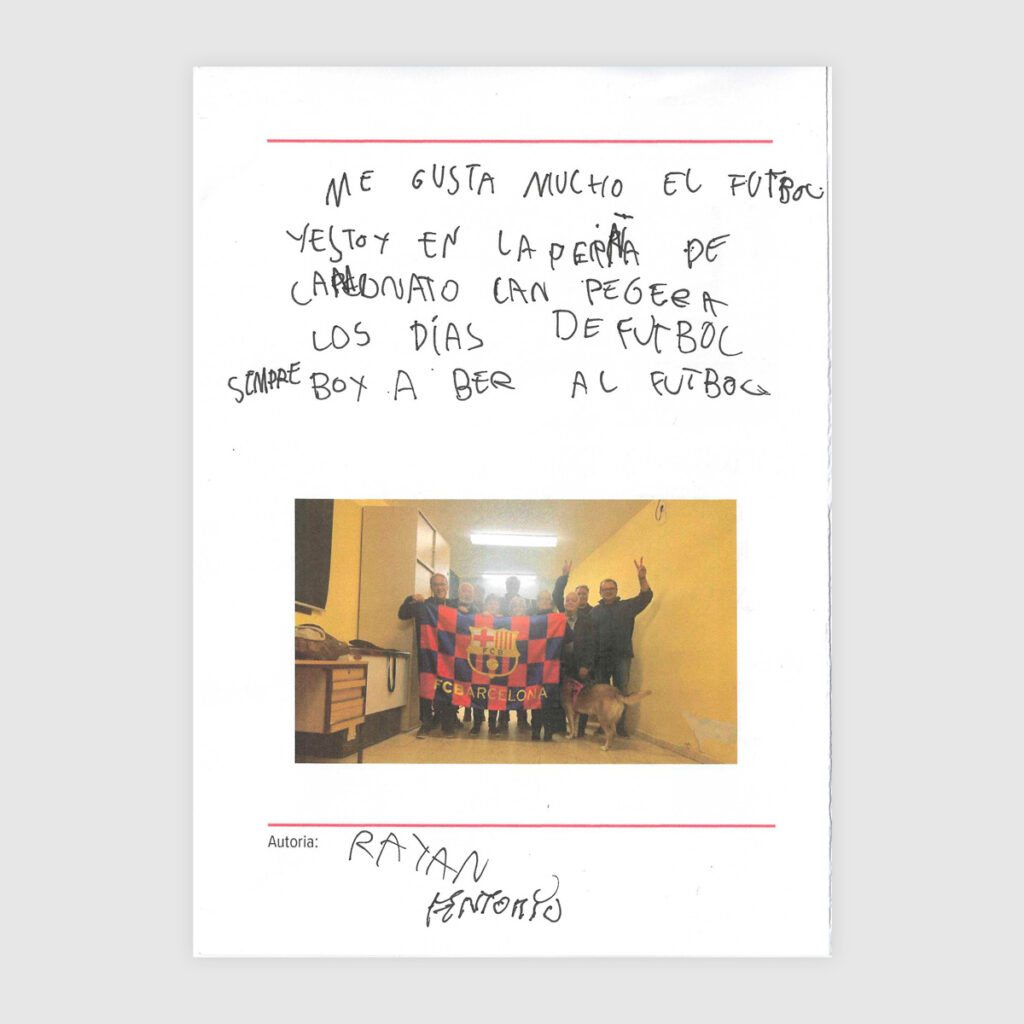 ME GUSTA MUCHO EL FUTBOL
YESTOY EN LA PEÑA DE
LOS DÍAS DE FUTBOL
SEMPRE BOY A BER AL FUTBOL
FCB
FCBARCELONA
Autoria: RAYAN
ANTONIO